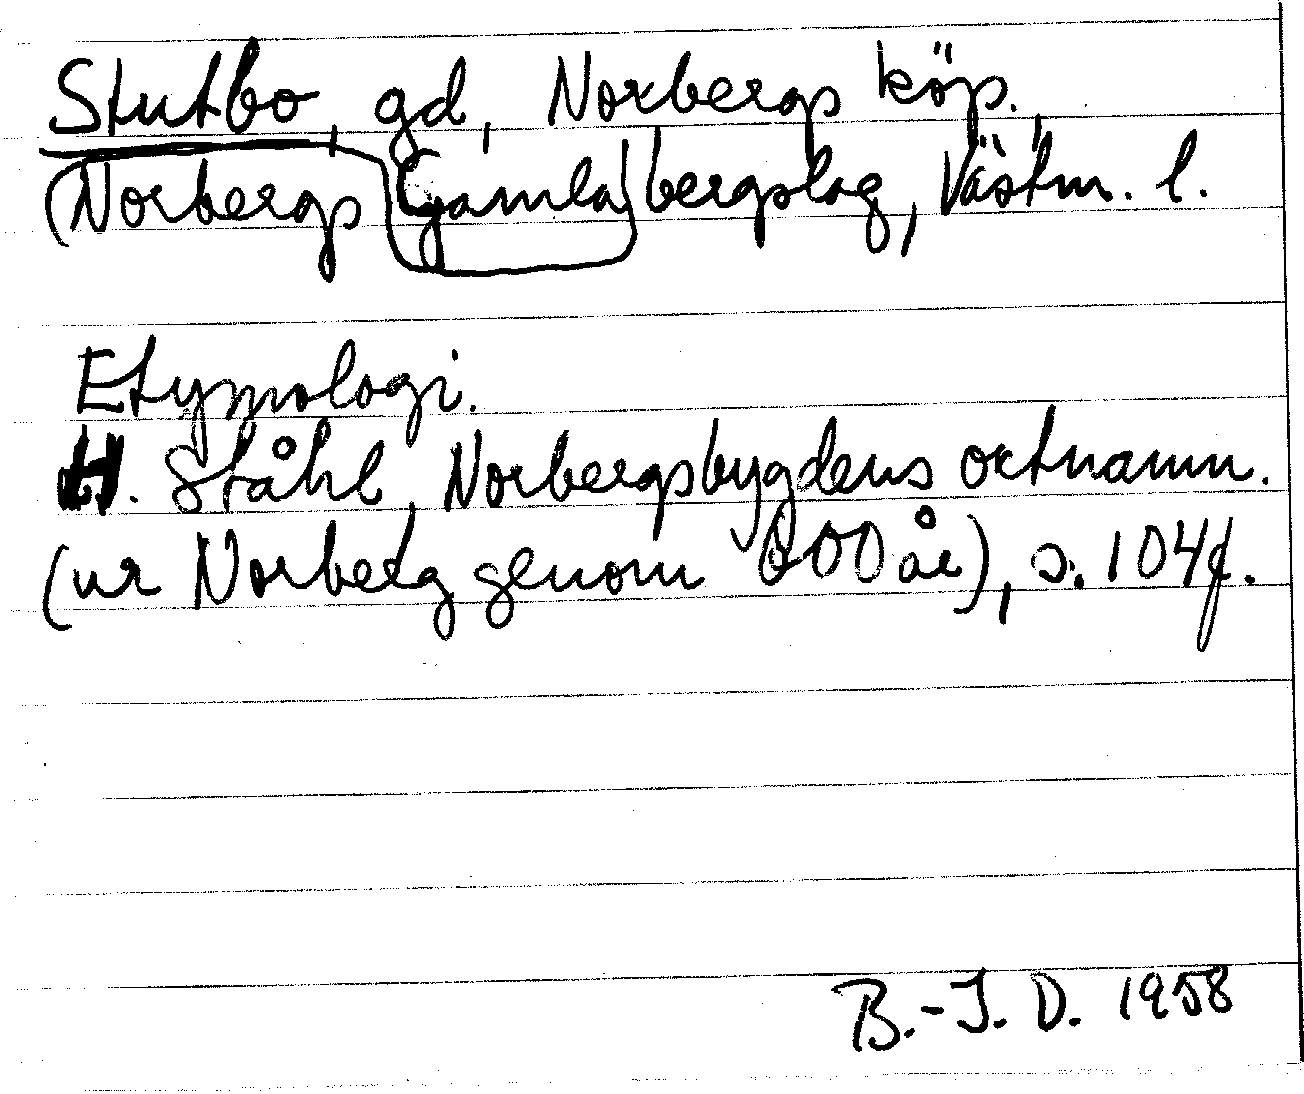 Stutbo, gd, Norbergs köp.,
(Norbergs Gamla) bergslag, Västm. l.
Etymologi.
H. Ståhl, Norbergsbygdens ortnamn.
(ur Norberg genom 600 år), s. 104f.
B.-J. D. 1958